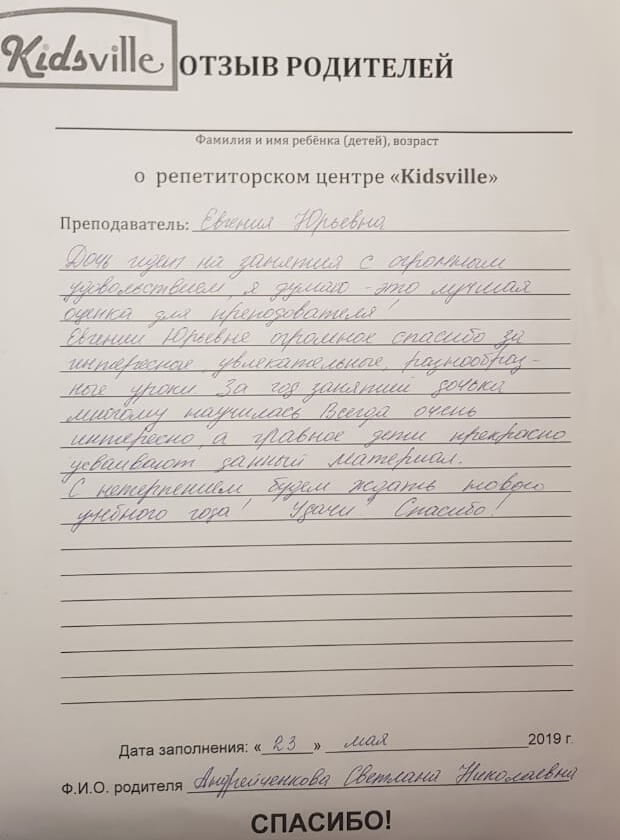 Kidsville
ОТЗЫВ РОДИТЕЛЕЙ
Фамилия и имя ребёнка (детей), возраст
о репетиторском центре «Kidsville»
Преподаватель: Евгения Юрьевна
Дочь идет на занятия с огромным
удовольствием, я думаю - это лучшая
оценка для преподователя!
Евгении Юрьевне огромное спасибо за
интересные, увлекательные, разнообраз-
ные уроки. За год занятий дочька
многому научилась. Всегда очень
интересно, а главное дети прекрасно
усваивают данный материал.
С нетерпением будем ждать нового
учебного года! Удачи! Спасибо!
Дата заполнения: «23» мая 2019 г.
Ф.И.О. родителя Андрейченкова Светлана Николаевна
СПАСИБО!